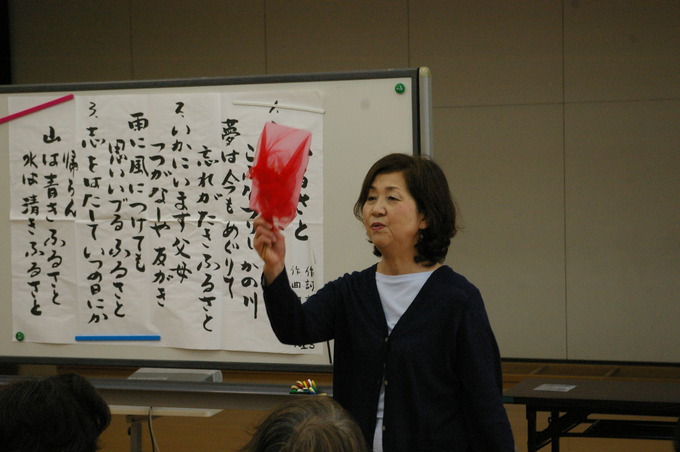 るさと
作詞
作曲
つりしかの川
夢は今もめぐりて
忘れがたきふるさと
2.いかにいます父母
つつがなしや 友がき
雨に風につけても
思いいづるふるさと
3.志をはたしていつの日にか
帰らん
山は青きふるさと
水は清きふるさと